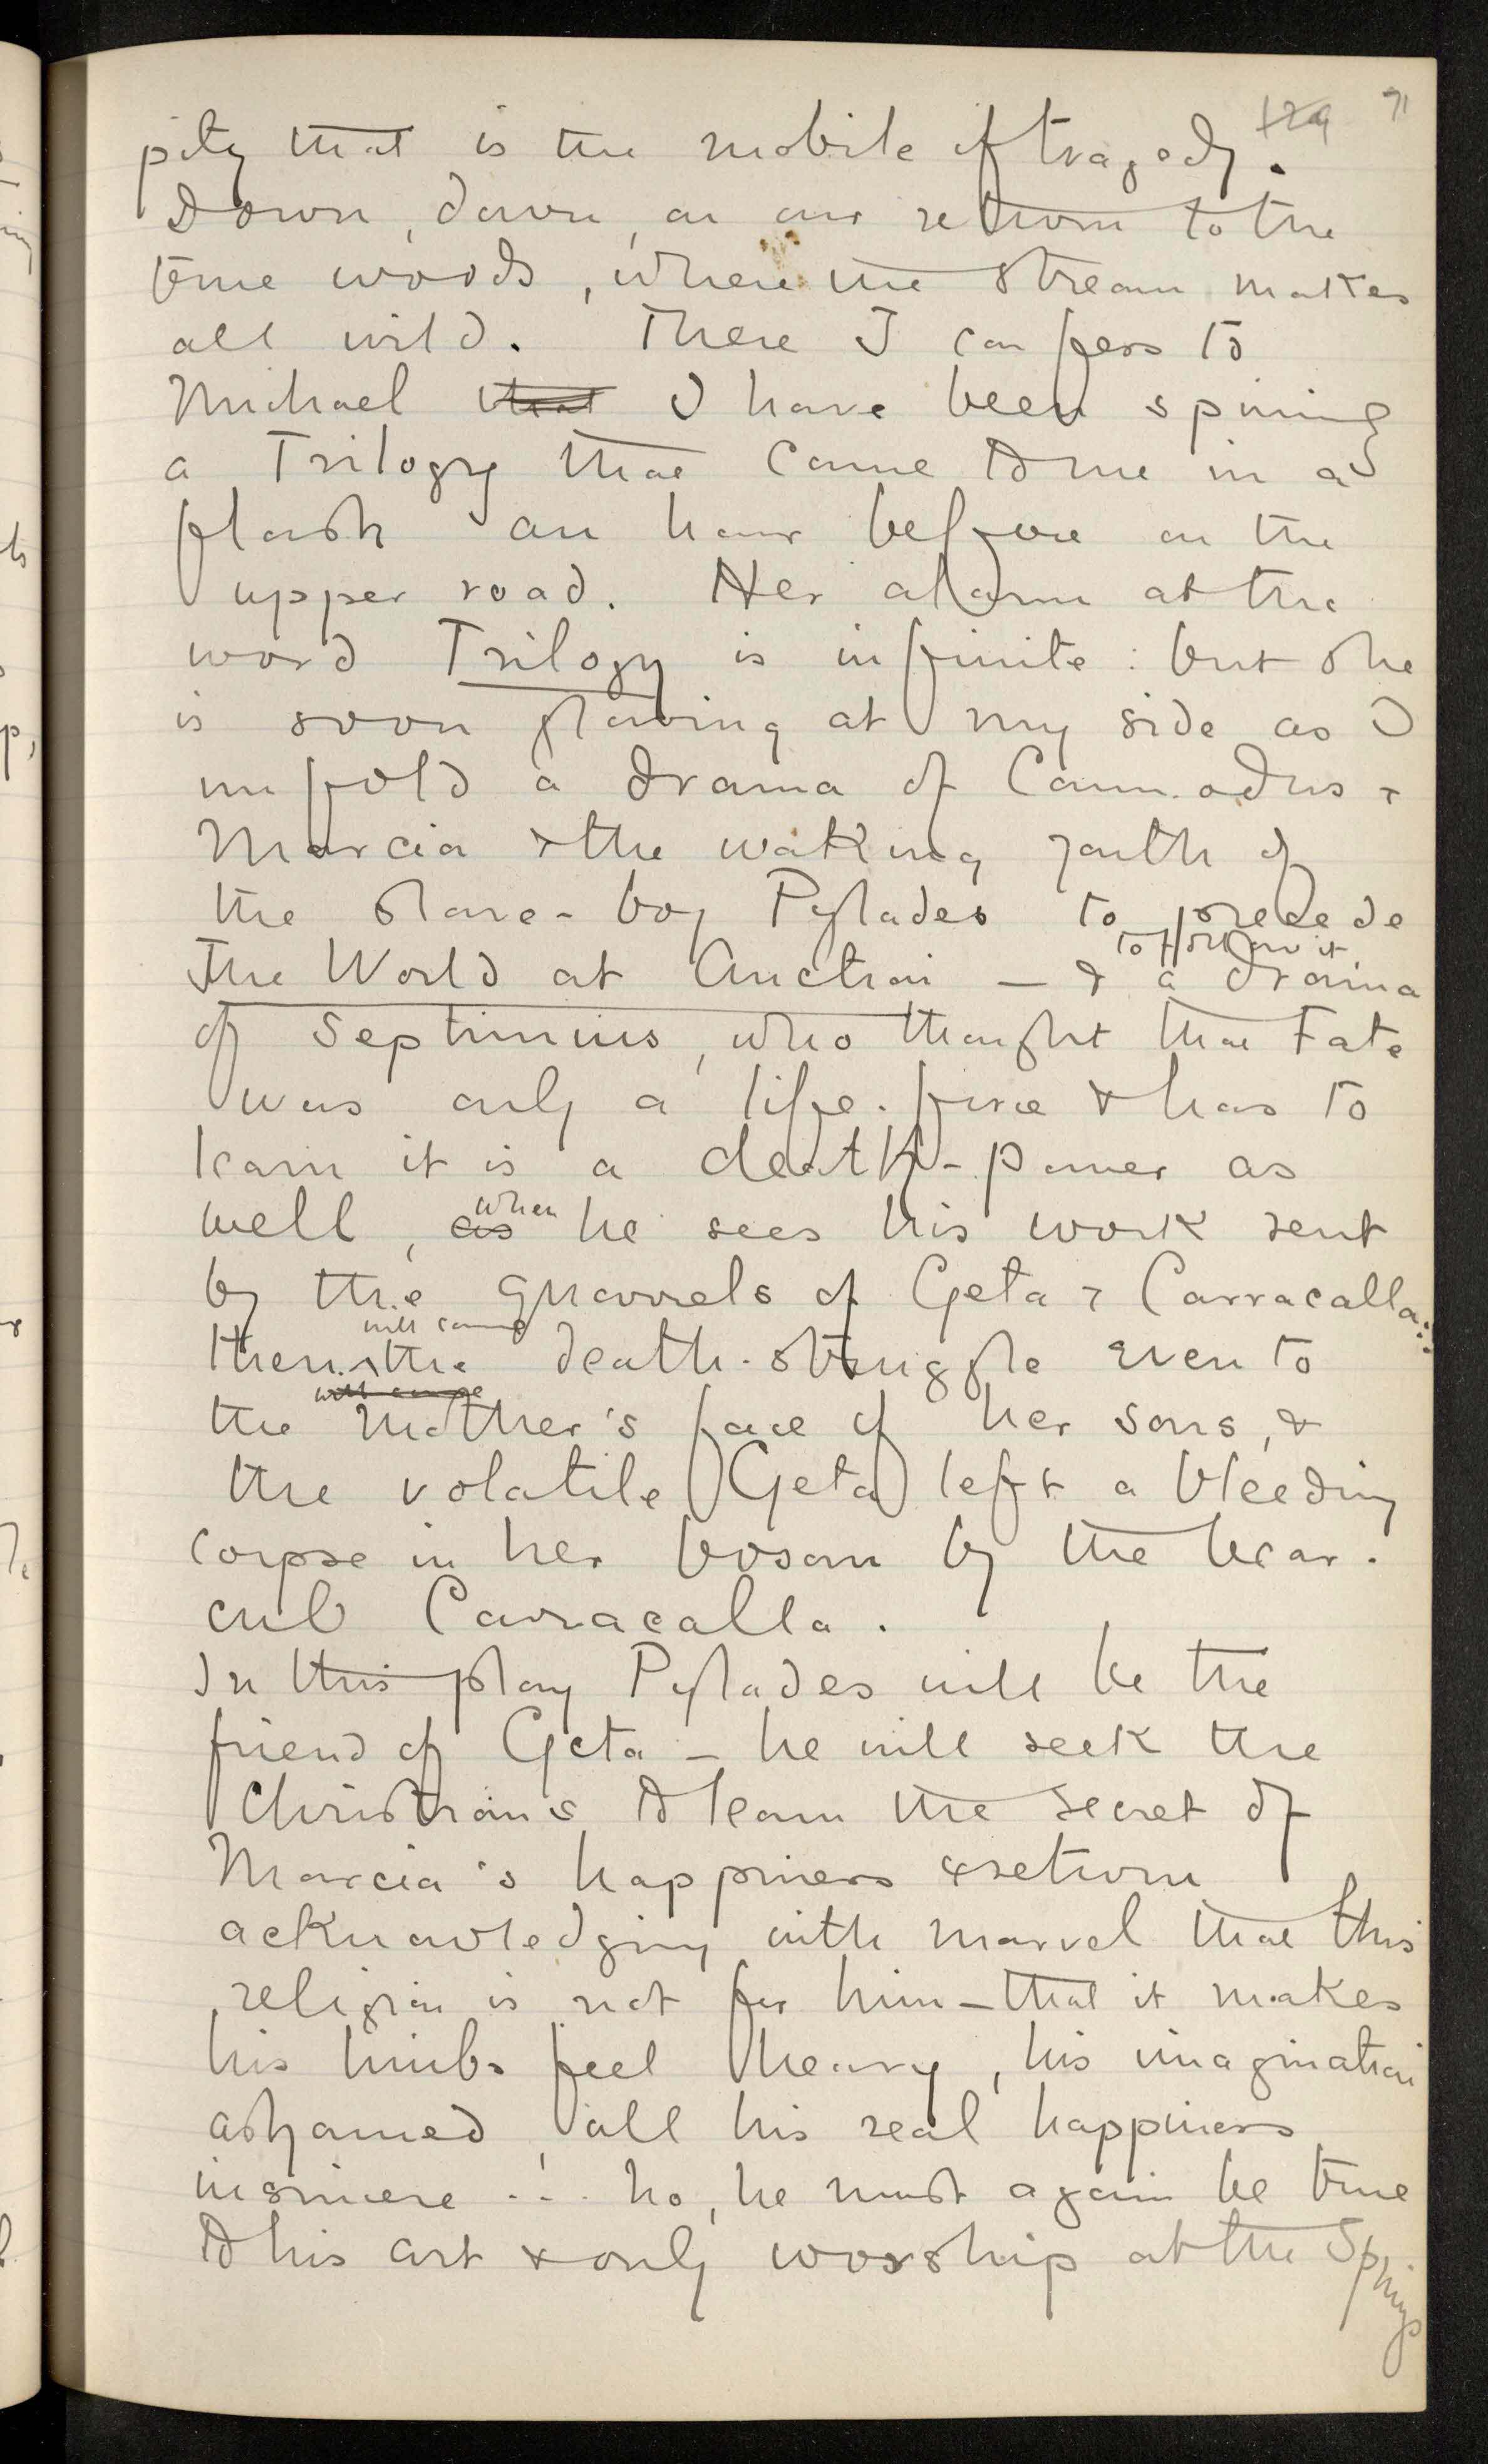 129 71
pity that is the mobile of tragedy.
Down, down, on our return to the
true woods, where the stream makes
all wild. There I confess to
Michael that I have been spining
a Trilogy that came to me in a
flash an hour before on the
upper road. Her alarm at the
word Trilogy is infinite : but she
is soon glowing at my side as I
unfold a drama of Commodus &
Marcia & the waking youth of
the slave-boy Pylades to precede
to follow it
The World at Auction — & a drama
of Septimius, who thought that Fate
was only a life-force & has to
learn it is a death-power as
when
well, as he sees his work rent
by the quarrels of Geta & Carracalla:
will come
then the death-struggle even to
will come
the Mother's face of her sons, &
the volatile Geta left a bleeding
corpse in her bosom by the bear-
cub Carracalla.
In this play Pylades will be the
friend of Geta — he will seek the
Christians to learn the secret of
Marcia's happiness & return
acknowledging with marvel that this
religion is not for him — that it makes
his limbs feel heavy, his imagination
ashamed, all his real happiness
insincere ... no, he must again be true
to his art & only worship at the Springs